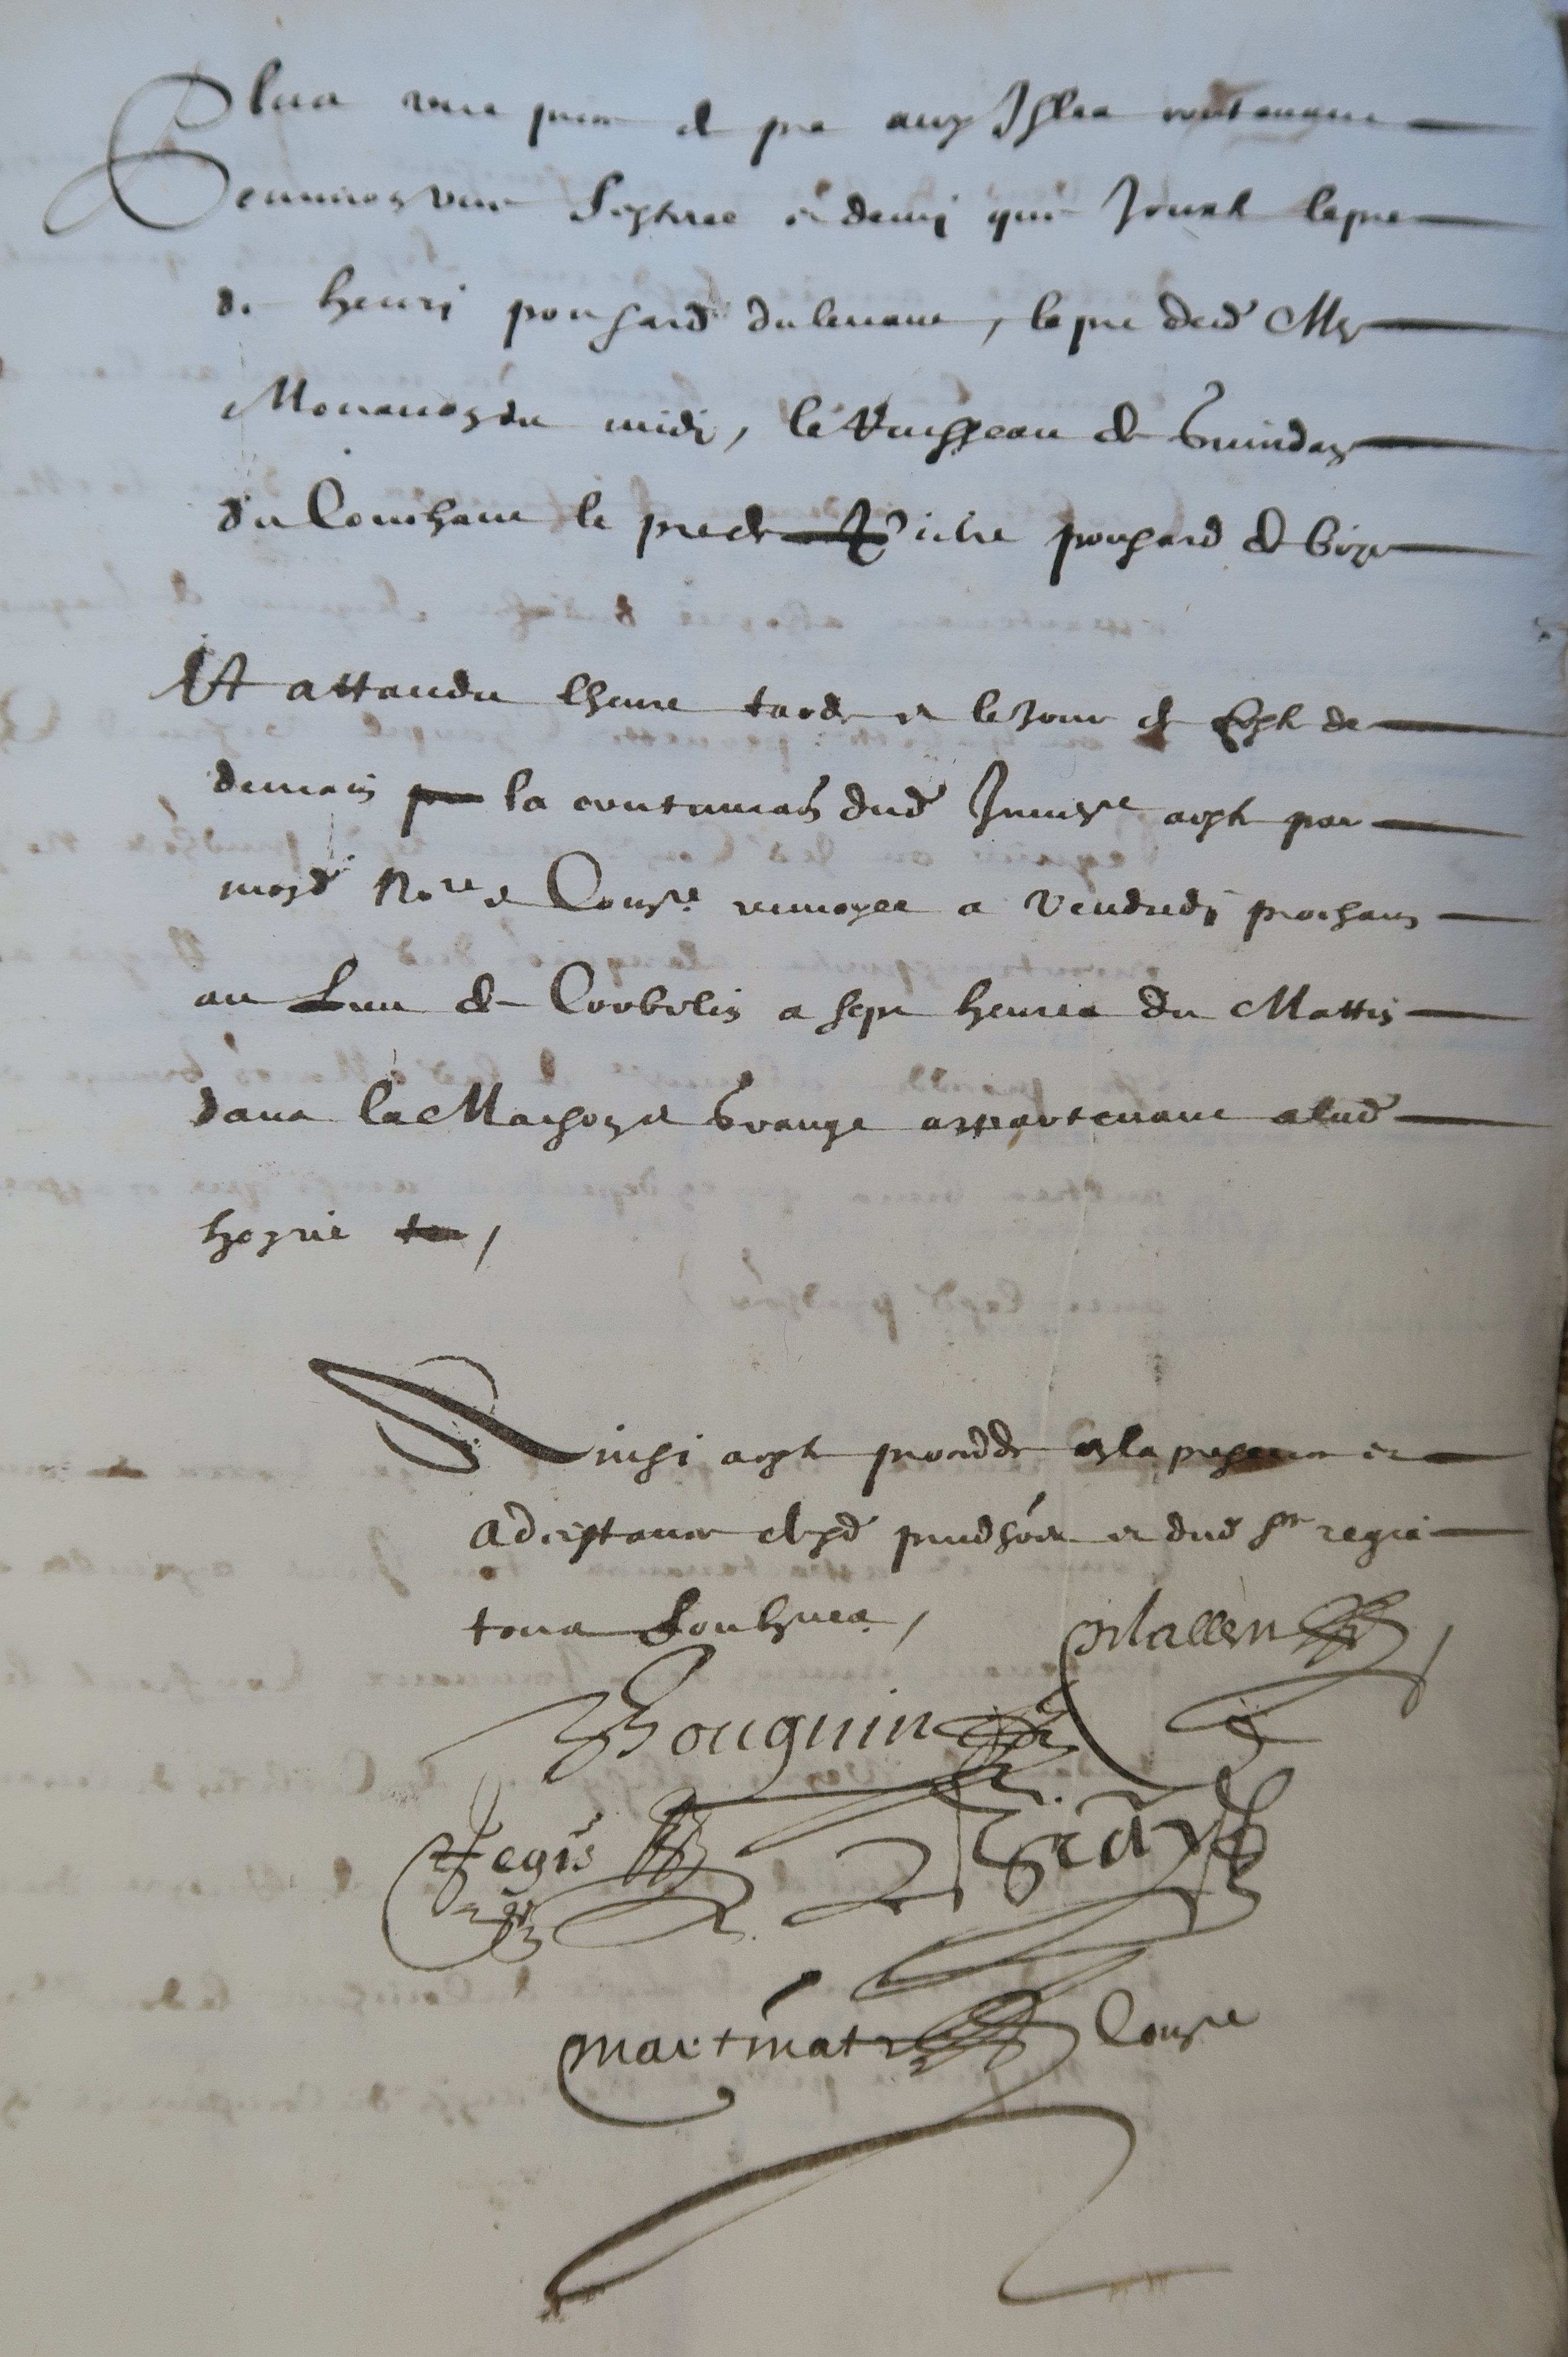 Plus une piece de pre aux Isles contenant
environ une septeree et demi que Joint le pre
de henri pourchard du levant, le pre dud Mr
du midi, le Ruisseau de
du Couchant le pre de pourchard de bize
Et attandu lheure tarde et le Jour de feste de
demain la continuaon dud Invre a este par
moyd Nore et Comre renvoyee a Vendredi prochain
au Lieu de Corbelin a sept heures du Mattin
dans la Maison et Grange appartenant a lad
hoyrie
Ainsi a este procede en la presence et
adcistance desd preudhoes et dud sr regis
tous soubnes,
Mallein
Bouquin
Regis
martinat Comre